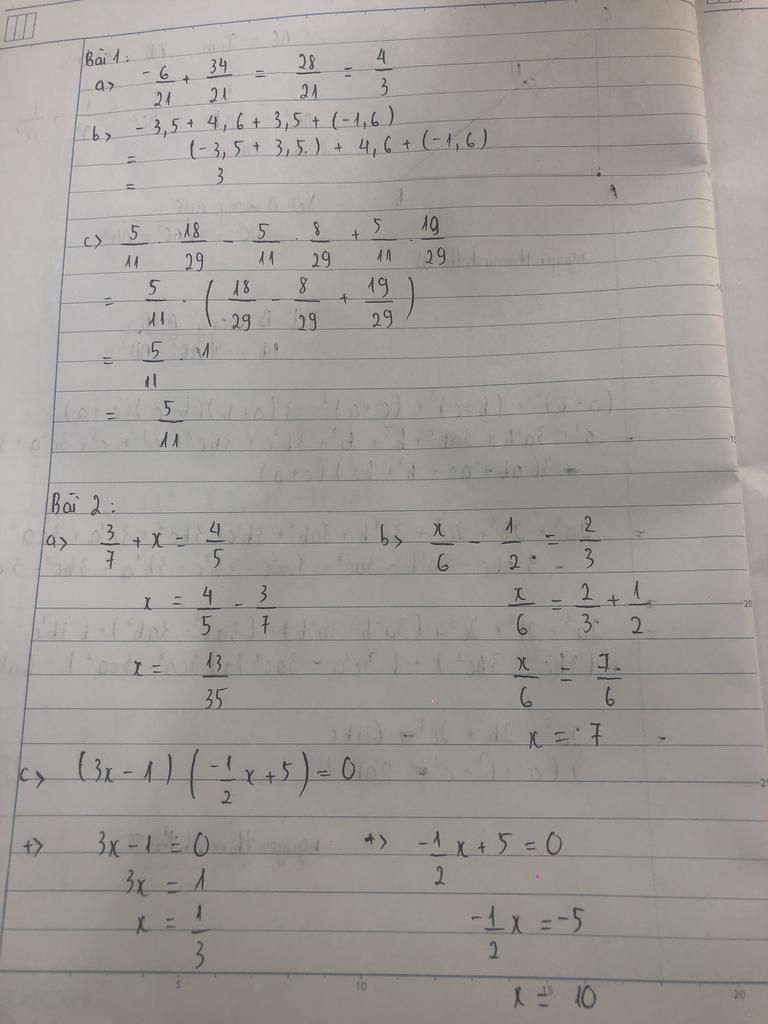 Bài 1:
a> -6/21 + 34/21 = 28/21 = 4/3
b> -3,5 + 4,6 + 3,5 + (-1,6)
= (-3,5 + 3,5) + 4,6 + (-1,6)
= 3
c> 5/11 . 18/29 - 5/11 . 8/29 + 5/11 . 19/29
= 5/11 . (18/29 - 8/29 + 19/29)
= 5/11 . 1
= 5/11
Bài 2:
a> 3/7 + x = 4/5
x = 4/5 - 3/7
x = 13/35
b> x/6 - 1/2 = 2/3
x/6 = 2/3 + 1/2
x/6 = 7/6
x = 7
c> (3x - 1) (-1/2 x + 5) = 0
+> 3x - 1 = 0
3x = 1
x = 1/3
+> -1/2 x + 5 = 0
-1/2 x = -5
x = 10
5 10 15 20